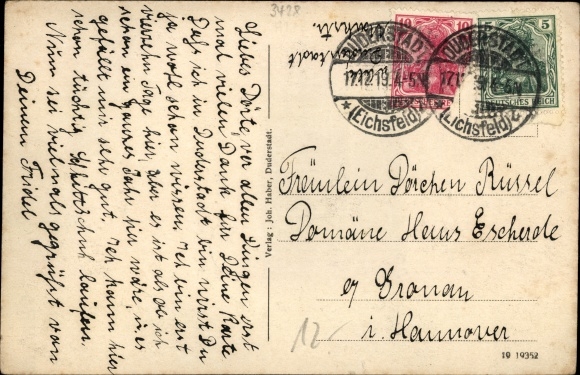 3428
Liebes Dörte, vor allen Dingen erst
mal vielen Dank für Deine Karte
Daß ich in Duderstadt bin wirst Du
ja wohl schon wissen. Ich bin erst
vierzehn Tage hier, aber es ist als ob ich
schon ein ganzes Jahr hier wäre, es
gefällt mir sehr gut. Ich kann hier
schon tüchtig Schlittschuh laufen.
Nun sei vielmals gegrüßt von
Deinem
Duderstadt
Verlag: Joh. Haber, Duderstadt.
10 10
5
DEUTSCHES REICH
DUDERSTADT
17.12.19. 4-5N
*(Eichsfeld)
DUDERSTADT
17.12.19. 4-5N
*(Eichsfeld)
Fräulein Dörchen Rüssel
Domäne Haus Escherde
Gronau
i. Hannover
12
19 19352